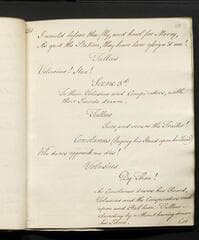 I would before the Sky and kneel for Mercy,
He quit the Station, they have
Tullus
Volusius! Stay!
Scene 3d
To them Volusius and Conspirators, with
their Swords drawn.
Tullus
Seize and secure the Traitor!
Coriolanus (laying his Hand upon his Sword)
Who dares approach me, dies!
Volusius
Die Thou!
As Coriolanus draws his Sword,
Volusius and the Conspirators rush
upon and Stab him. Tullus
standing by without having drawn
his Sword.